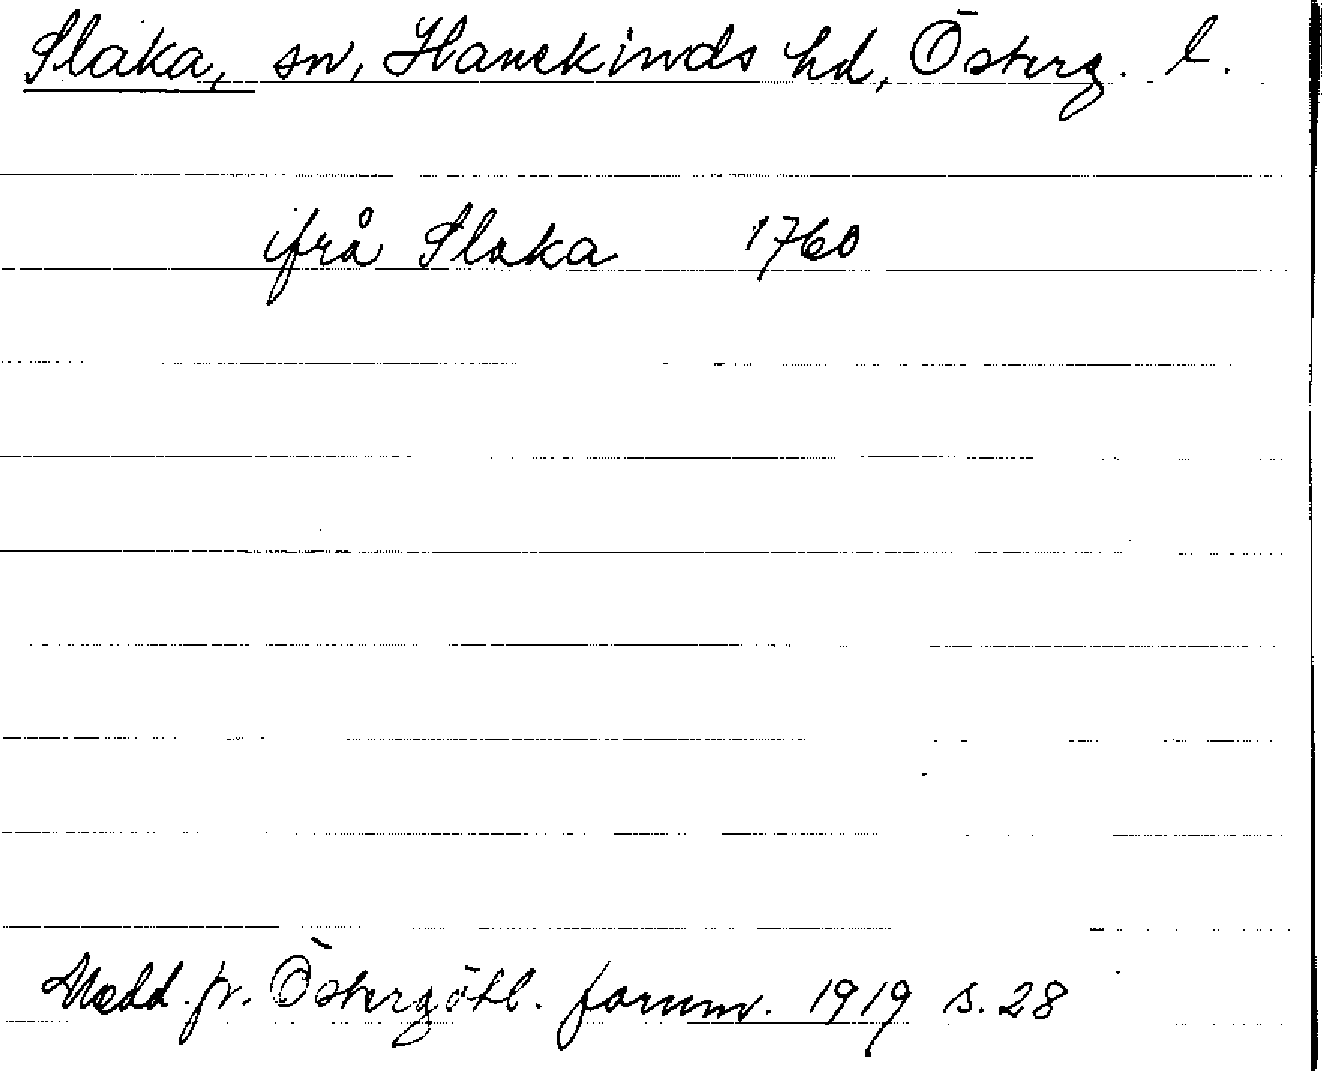 Slaka, sn, Hanekinds hd, Österg. l.
ifrå Slaka 1760
Medd. fr. Östergötl. fornm. 1919 s. 28